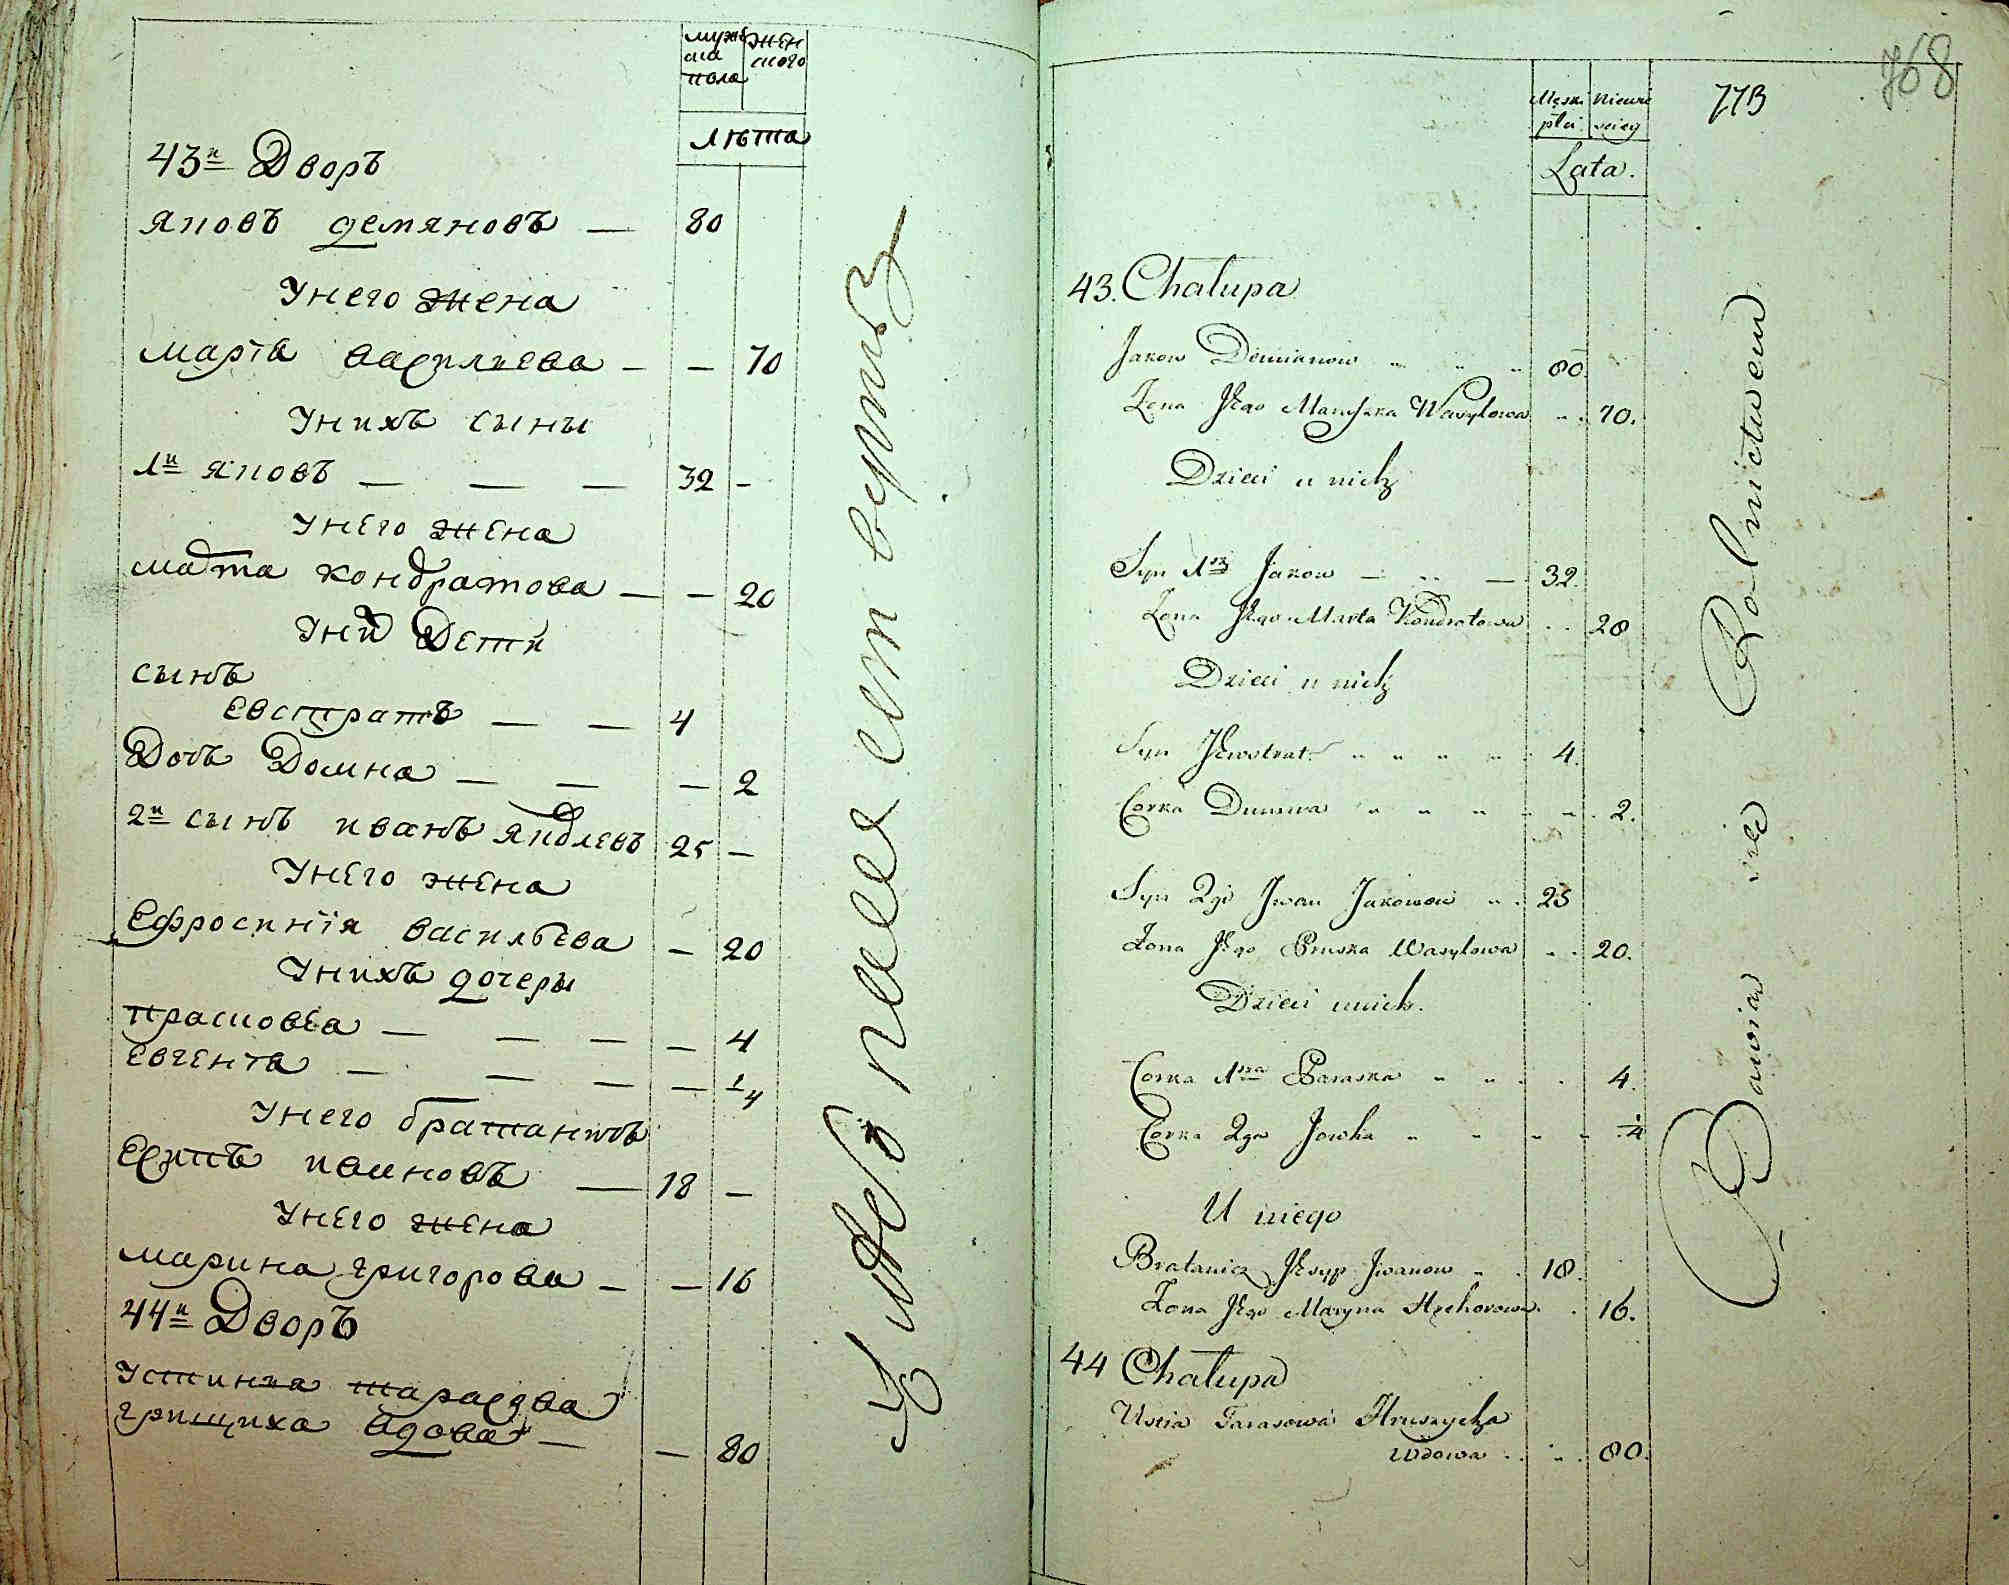 мужс женс
ка кого
пола
Лѣта
43й Дворъ
Яковъ Демяновъ — 80
Унего жена
Марѳа Василиева — — 70
Унихъ сыны
1й Яковъ — — — 32 —
Унего жена
Марта Кондратова — — 20
Дети
сынъ
Евстратъ — — 4
Дочь Домна — — — 2
2й сынъ Иванъ Яковлевъ 25 —
Унего жена
Ефросинїя Васильева — 20
Унихъ дочеры
Прасковея — — — — 4
Евгенїа — — — — 1/4
Унего братаничъ
Есипъ Ивановъ — 18 —
Унего жена
Марина Григорова — — 16
44й Дворъ
Устинья Тарасова
Грицика вдова — — 80
768
773
Męski Niewie
płci scieg
Lata.
43. Chałupa
Jakow Demianow 80.
Żona Jego Wasylowa 70.
Dzieci u nich
Syn 1szy Jakow — — 32.
Żona Jego Marta Kondratowa 20
Dzieci u nich
Syn Jewstrat 4.
Corka Dumna 2.
Syn 2gi Jwan Jakowow 25
Żona Jego Pruska Wasylowa 20.
Dzieci u nich.
Corka 1sza Paraska 4.
Corka 2ga Jowha 1/4
U niego
Bratanicz Jesyp Jwanow 18.
Żona Jego Maryna Hrehorowa 16.
44 Chałupa
Ustia Tarasowa Hruszycha
Wdowa 80.
Bawia sie Rolnictwem